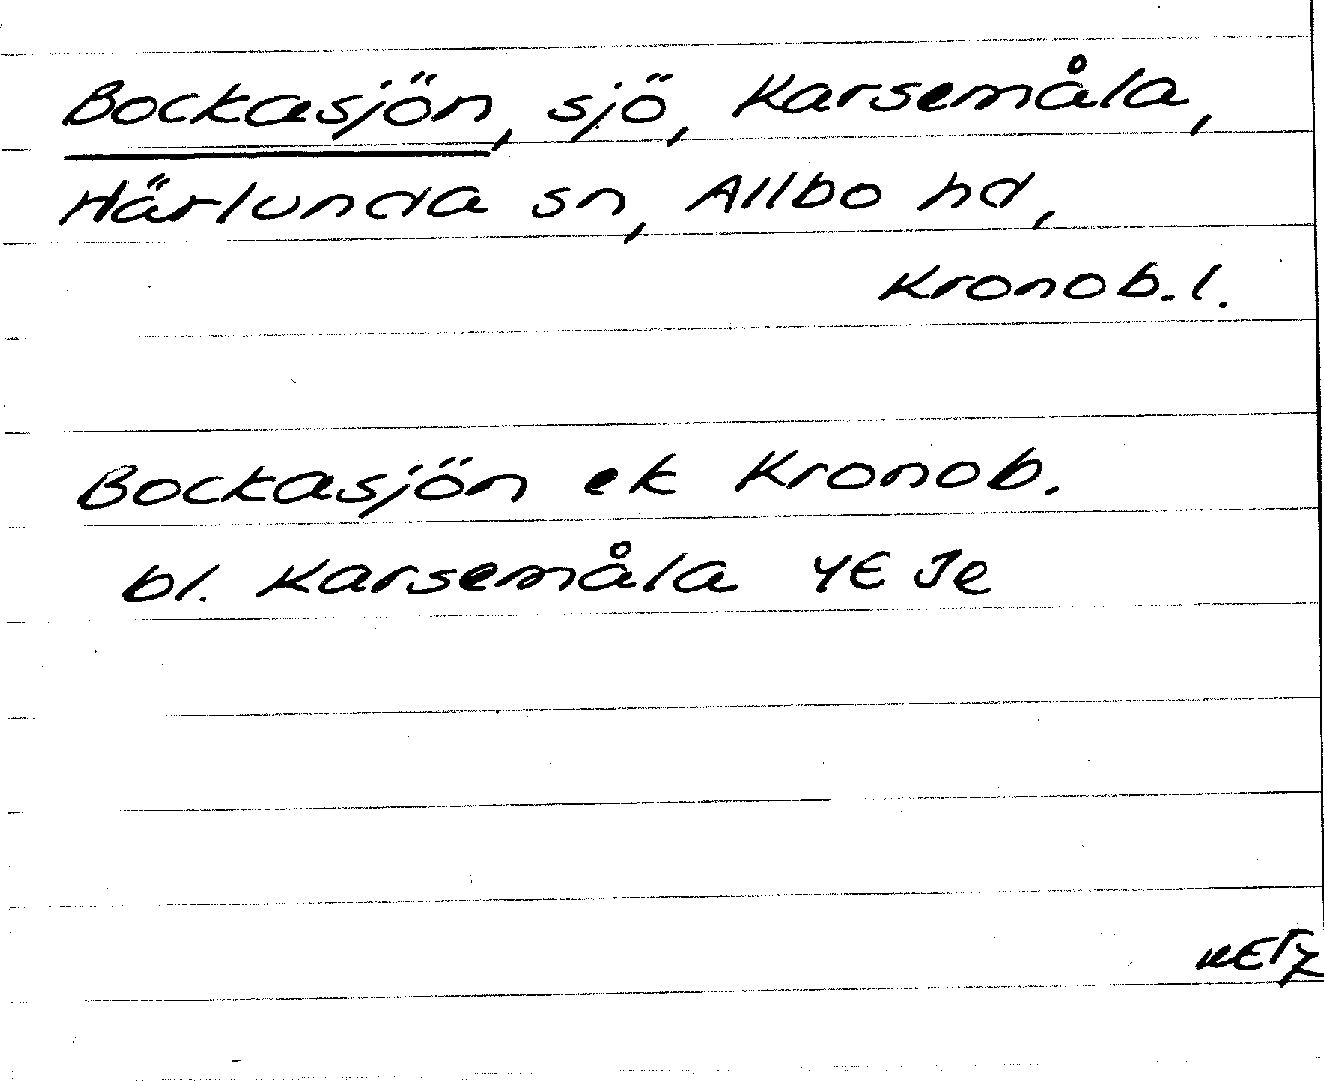 Bockasjön, sjö, Karsemåla,
Härlunda sn, Allbo hd,
Kronob. l.
Bockasjön ek Kronob.
bl. Karsemåla 4E Je